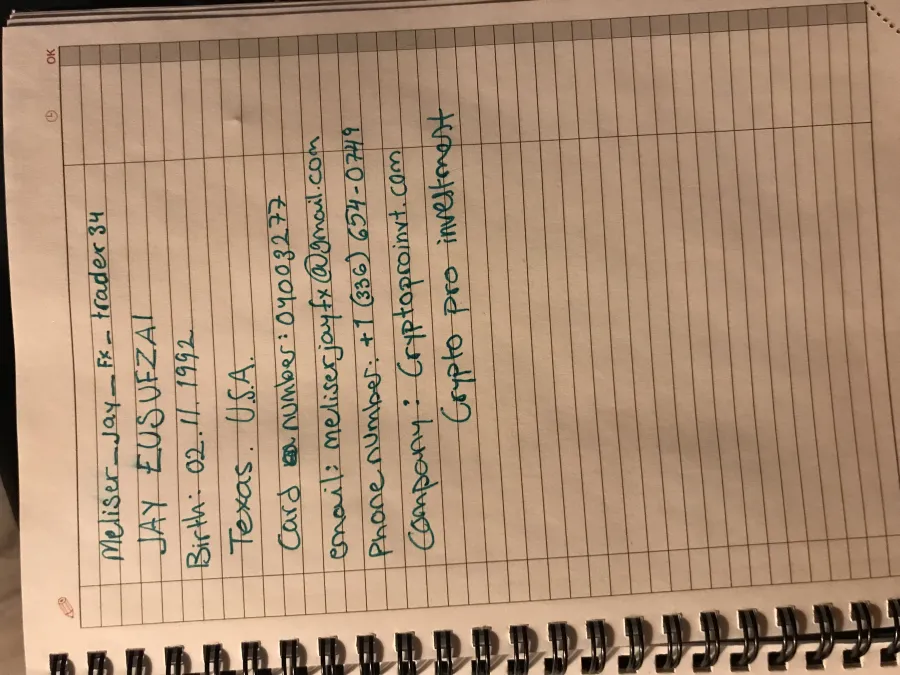 OK
Meliser_Jay_Fx_trader34
JAY EUSUFZAI
Birth: 02.11.1992
Texas. U.S.A.
Card number: 04003277
email: meliserjayfx@gmail.com
Phone number: +1 (336) 654-0749
Company: Cryptoproinvt.com
Crypto pro investment